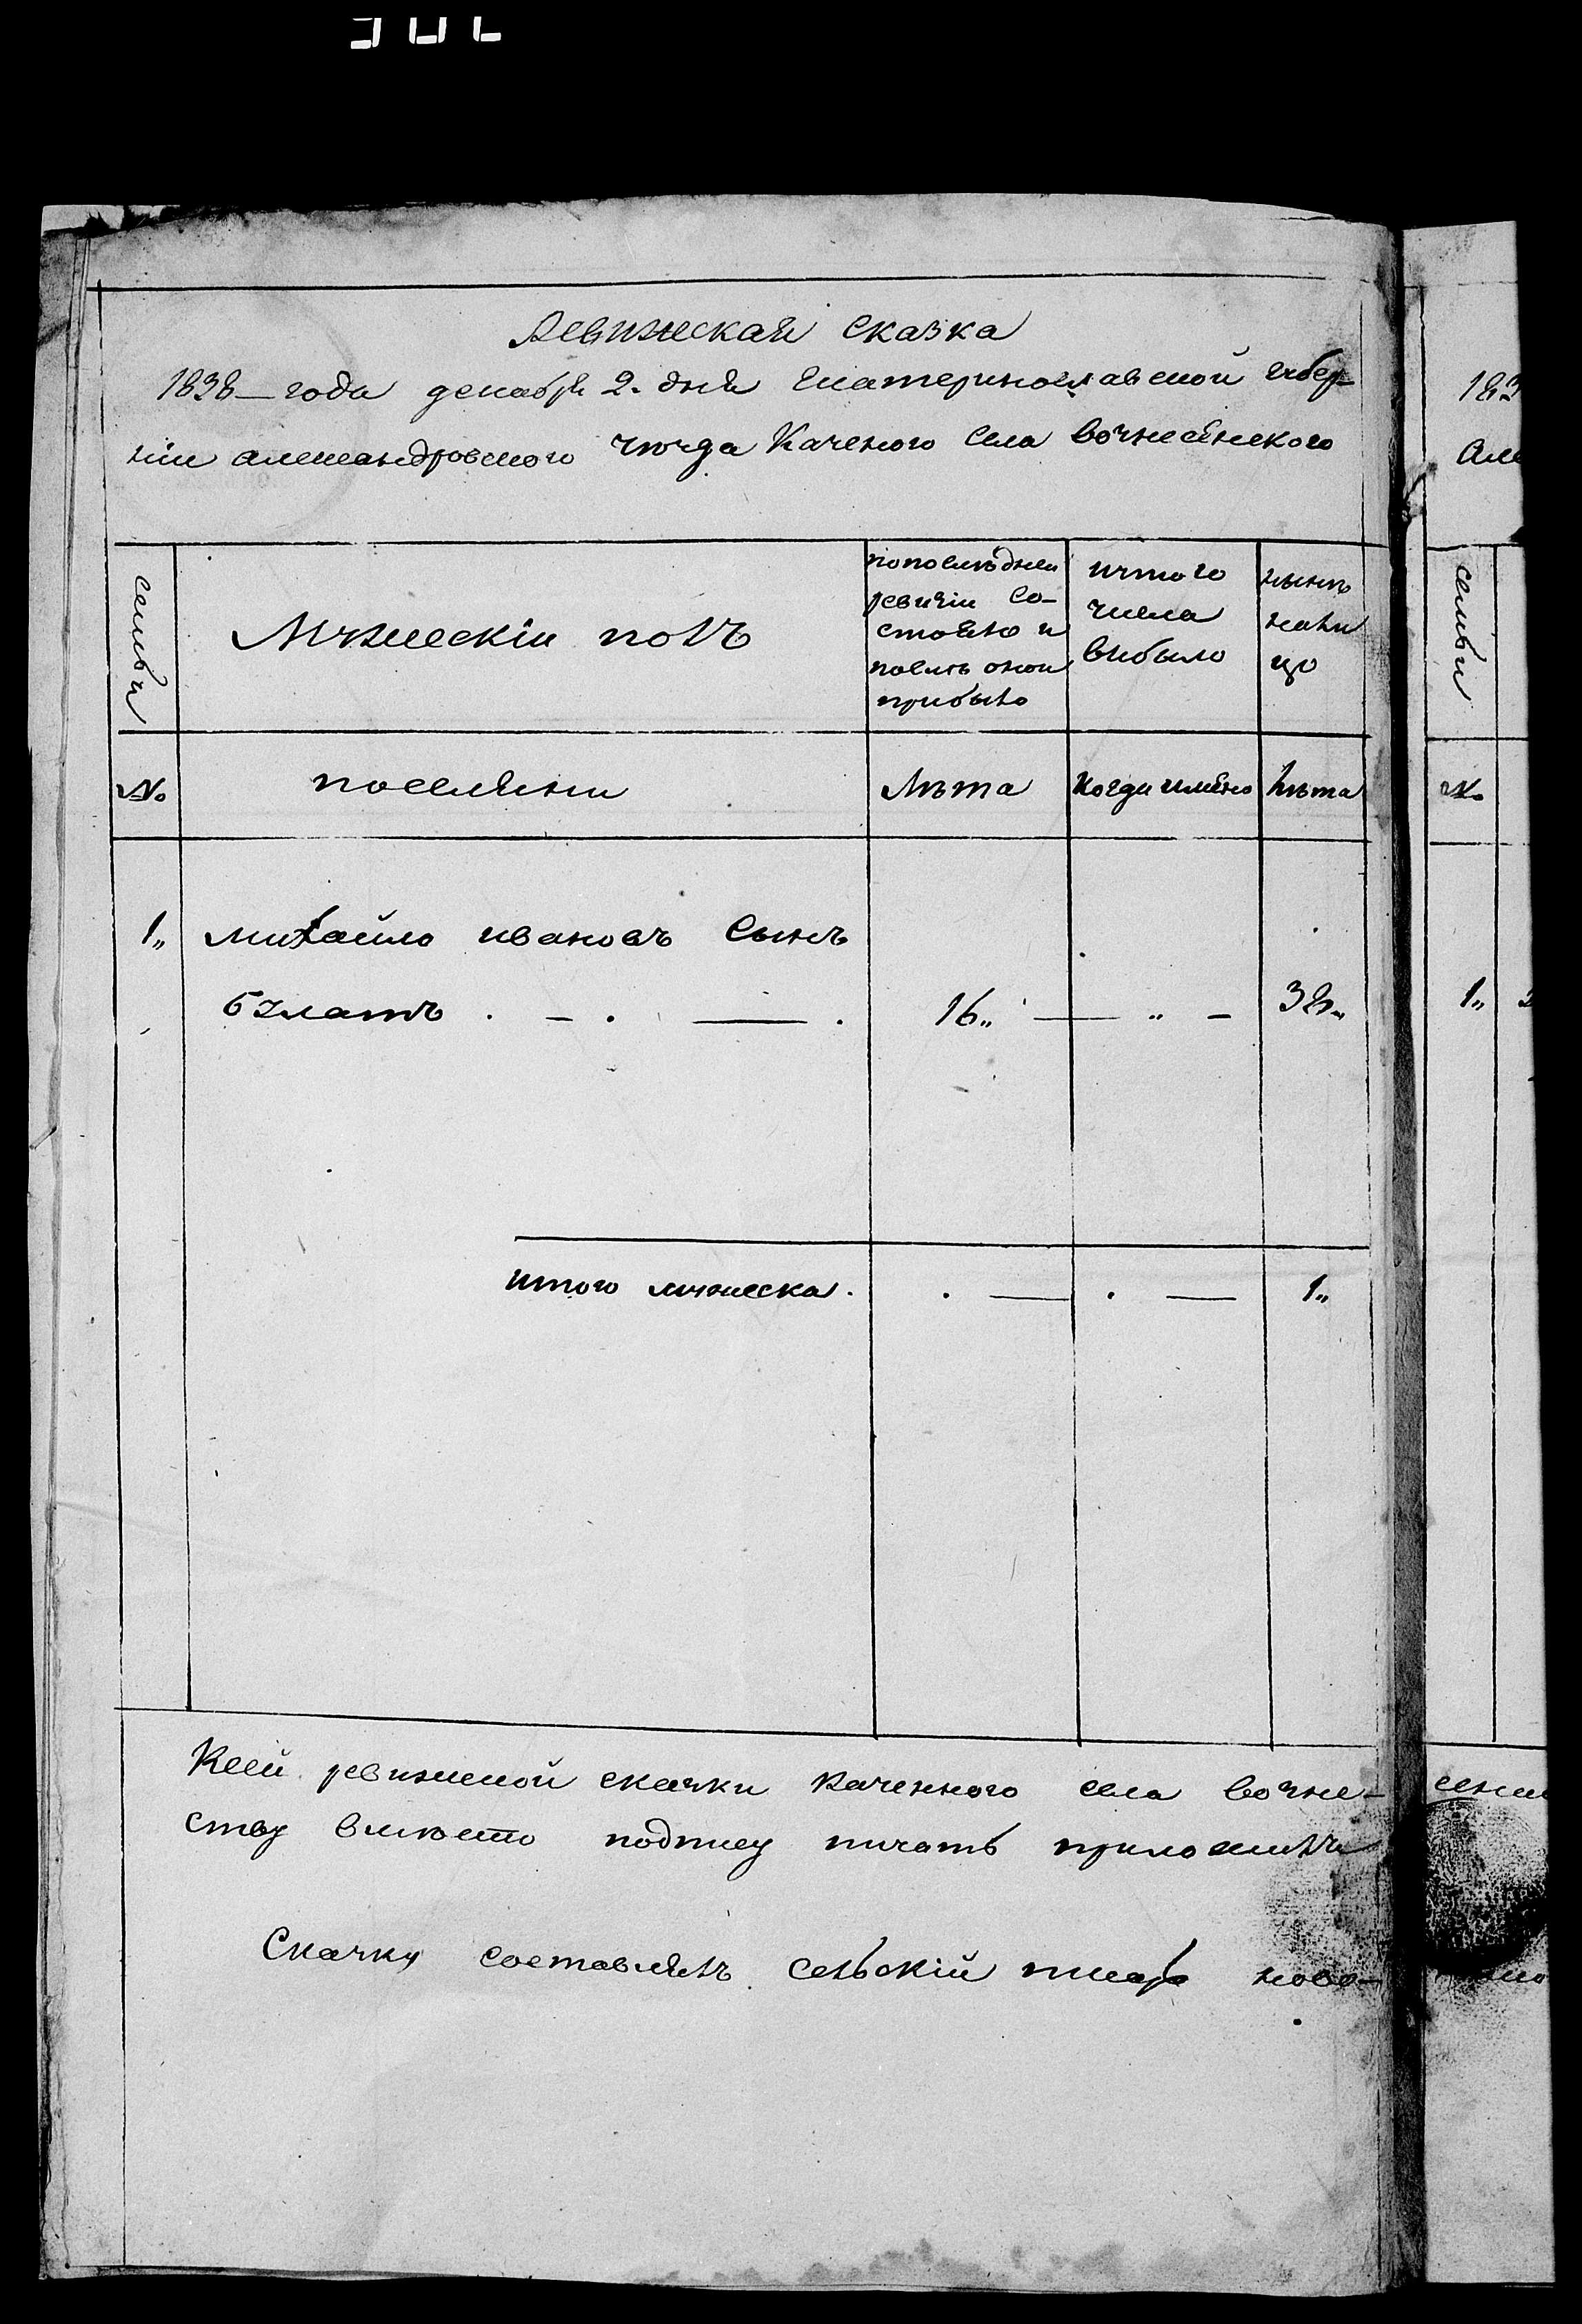 Ревижская сказка
1838 – года декабря 2. дня Екатеринославской губер-
нии александровского уезда Казеного Села вознесенского
семьи
Мужескій полъ
попоследнеи
ревизіи со-
стояло и
послѣ онои
прибыло
изтого
числа
выбыло
нынѣ
нали
цо
№
поселяни
Лѣта
когда имяно
Лѣта
1„ михайло ивановъ Сынъ
булатъ . – . — . 16„ — „ – 32„
итого мужеска . . — . — 1„
Ксей ревижской сказки казенного села возне-
ству вместо подпису пичать приложилъ
Сказку составлялъ сельскій писарь ново-
183
Але
семьи
№
1„